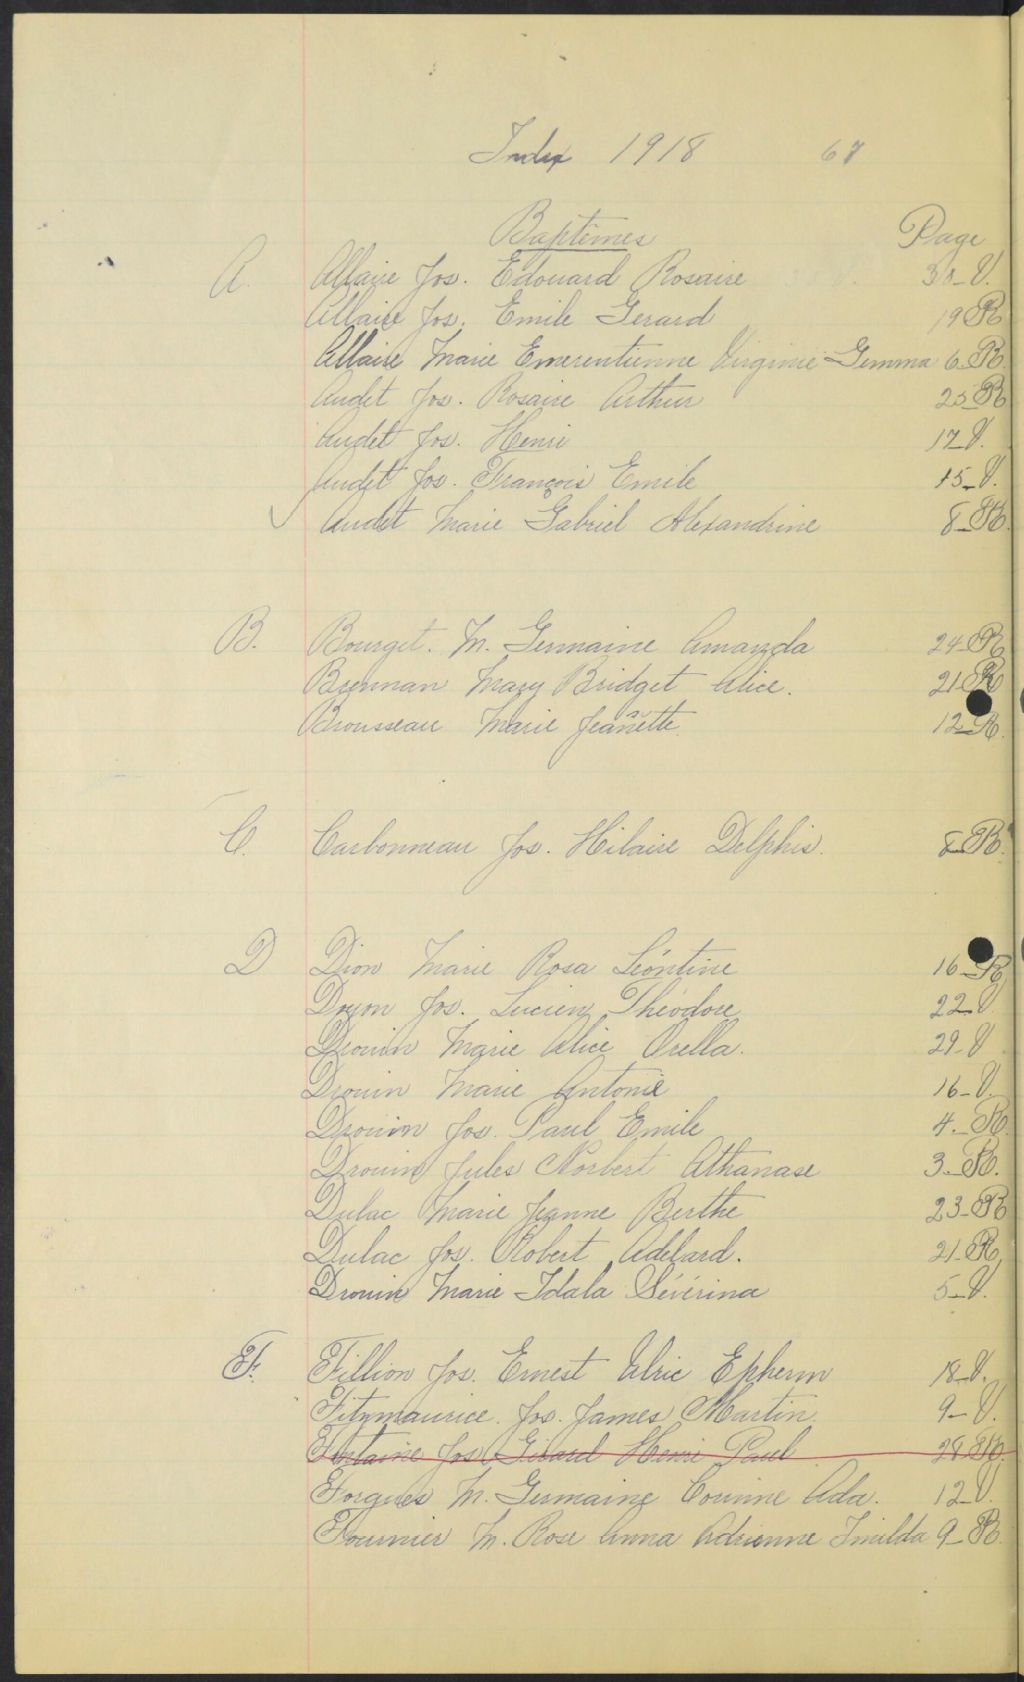 Index 1918 67
Baptêmes Page
A. Allaire Jos. Edouard Rosaire 30-V.
Allaire Jos. Emile Gerard 19 R
Allaire Marie Emerentienne Virginie-Gemma 6-R.
Audet Jos. Rosaire Arthur 25-R
Audet Jos. Henri 17-V.
Audet Jos. François Emile 15-V.
Audet Marie Gabriel Alexandrine 8-R.
B. Bourget. M. Germaine Amanda 24-R
Brennan Mary Bridget Alice. 21-R
Brousseau Marie Jeannette. 12-R.
C. Carbonneau Jos. Hilaire Delphis. 8-R.
D Dion Marie Rosa Léontine 16-R
Doyon Jos. Lucien Théodore 22-V
Drouin Marie Alice Orella. 29-V
Drouin Marie Antonie 16-V.
Drouin Jos. Paul Emile 4.-R.
Drouin Jules Norbert Athanase 3.-R.
Dulac Marie Jeanne Berthe 23-R
Dulac Jos. Robert Adelard. 21-R
Drouin Marie Idala Séverina 5-V.
F. Fillion Jos. Ernest Ulric Epherm 18-V.
Fitzmaurice. Jos. James Martin. 9-V.
Fontaine Jos. Girard Henri Paul 28-R.
Forgues M. Germaine Corinne Ada. 12-V.
Fournier M. Rose Anna Adrienne Imilda 9-R.